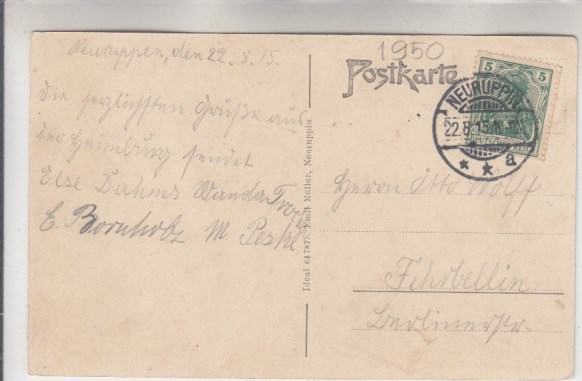 Neuruppen, den 22. 8. 15.
Die herzlichsten Grüße aus
der Heimburg sendet
Else Dahms Wanda
E. Bornholz M. Peske
Ideal 647873 Emil Müller, Neuruppin
1950
Postkarte
5 5
NEURUPPIN
22.8.15
* * a
Herrn Otto Wolff
Fehrbellin
Berlinerstr.